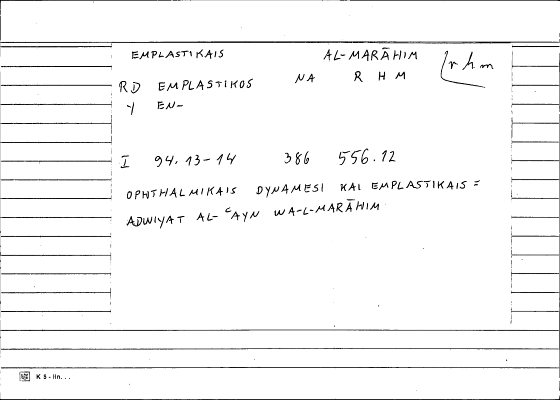 EMPLASTIKAIS AL-MARĀHIM rhm
RD EMPLASTIKOS NA R H M
Y EN-
I 94.13-14 386 556.12
OPHTHALMIKAIS DYNAMESI KAI EMPLASTIKAIS =
ADWIYAT AL-ᶜAYN WA-L-MARĀHIM
K 5 - lin...